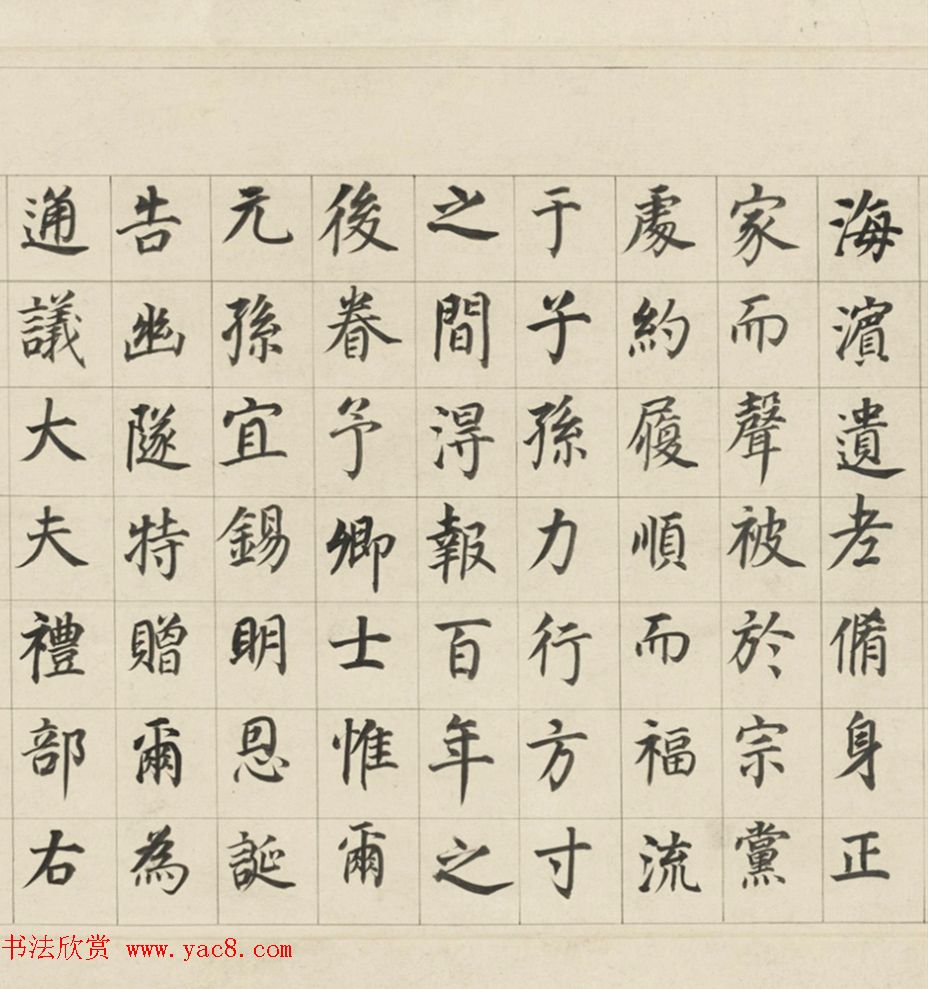 海濱遺老脩身正
家而聲被於宗黨
處約履順而福流
于子孫力行方寸
之間得報百年之
後眷予卿士惟爾
元孫宜錫明恩誕
告幽隧特贈爾為
通議大夫禮部右
书法欣赏 www.yac8.com